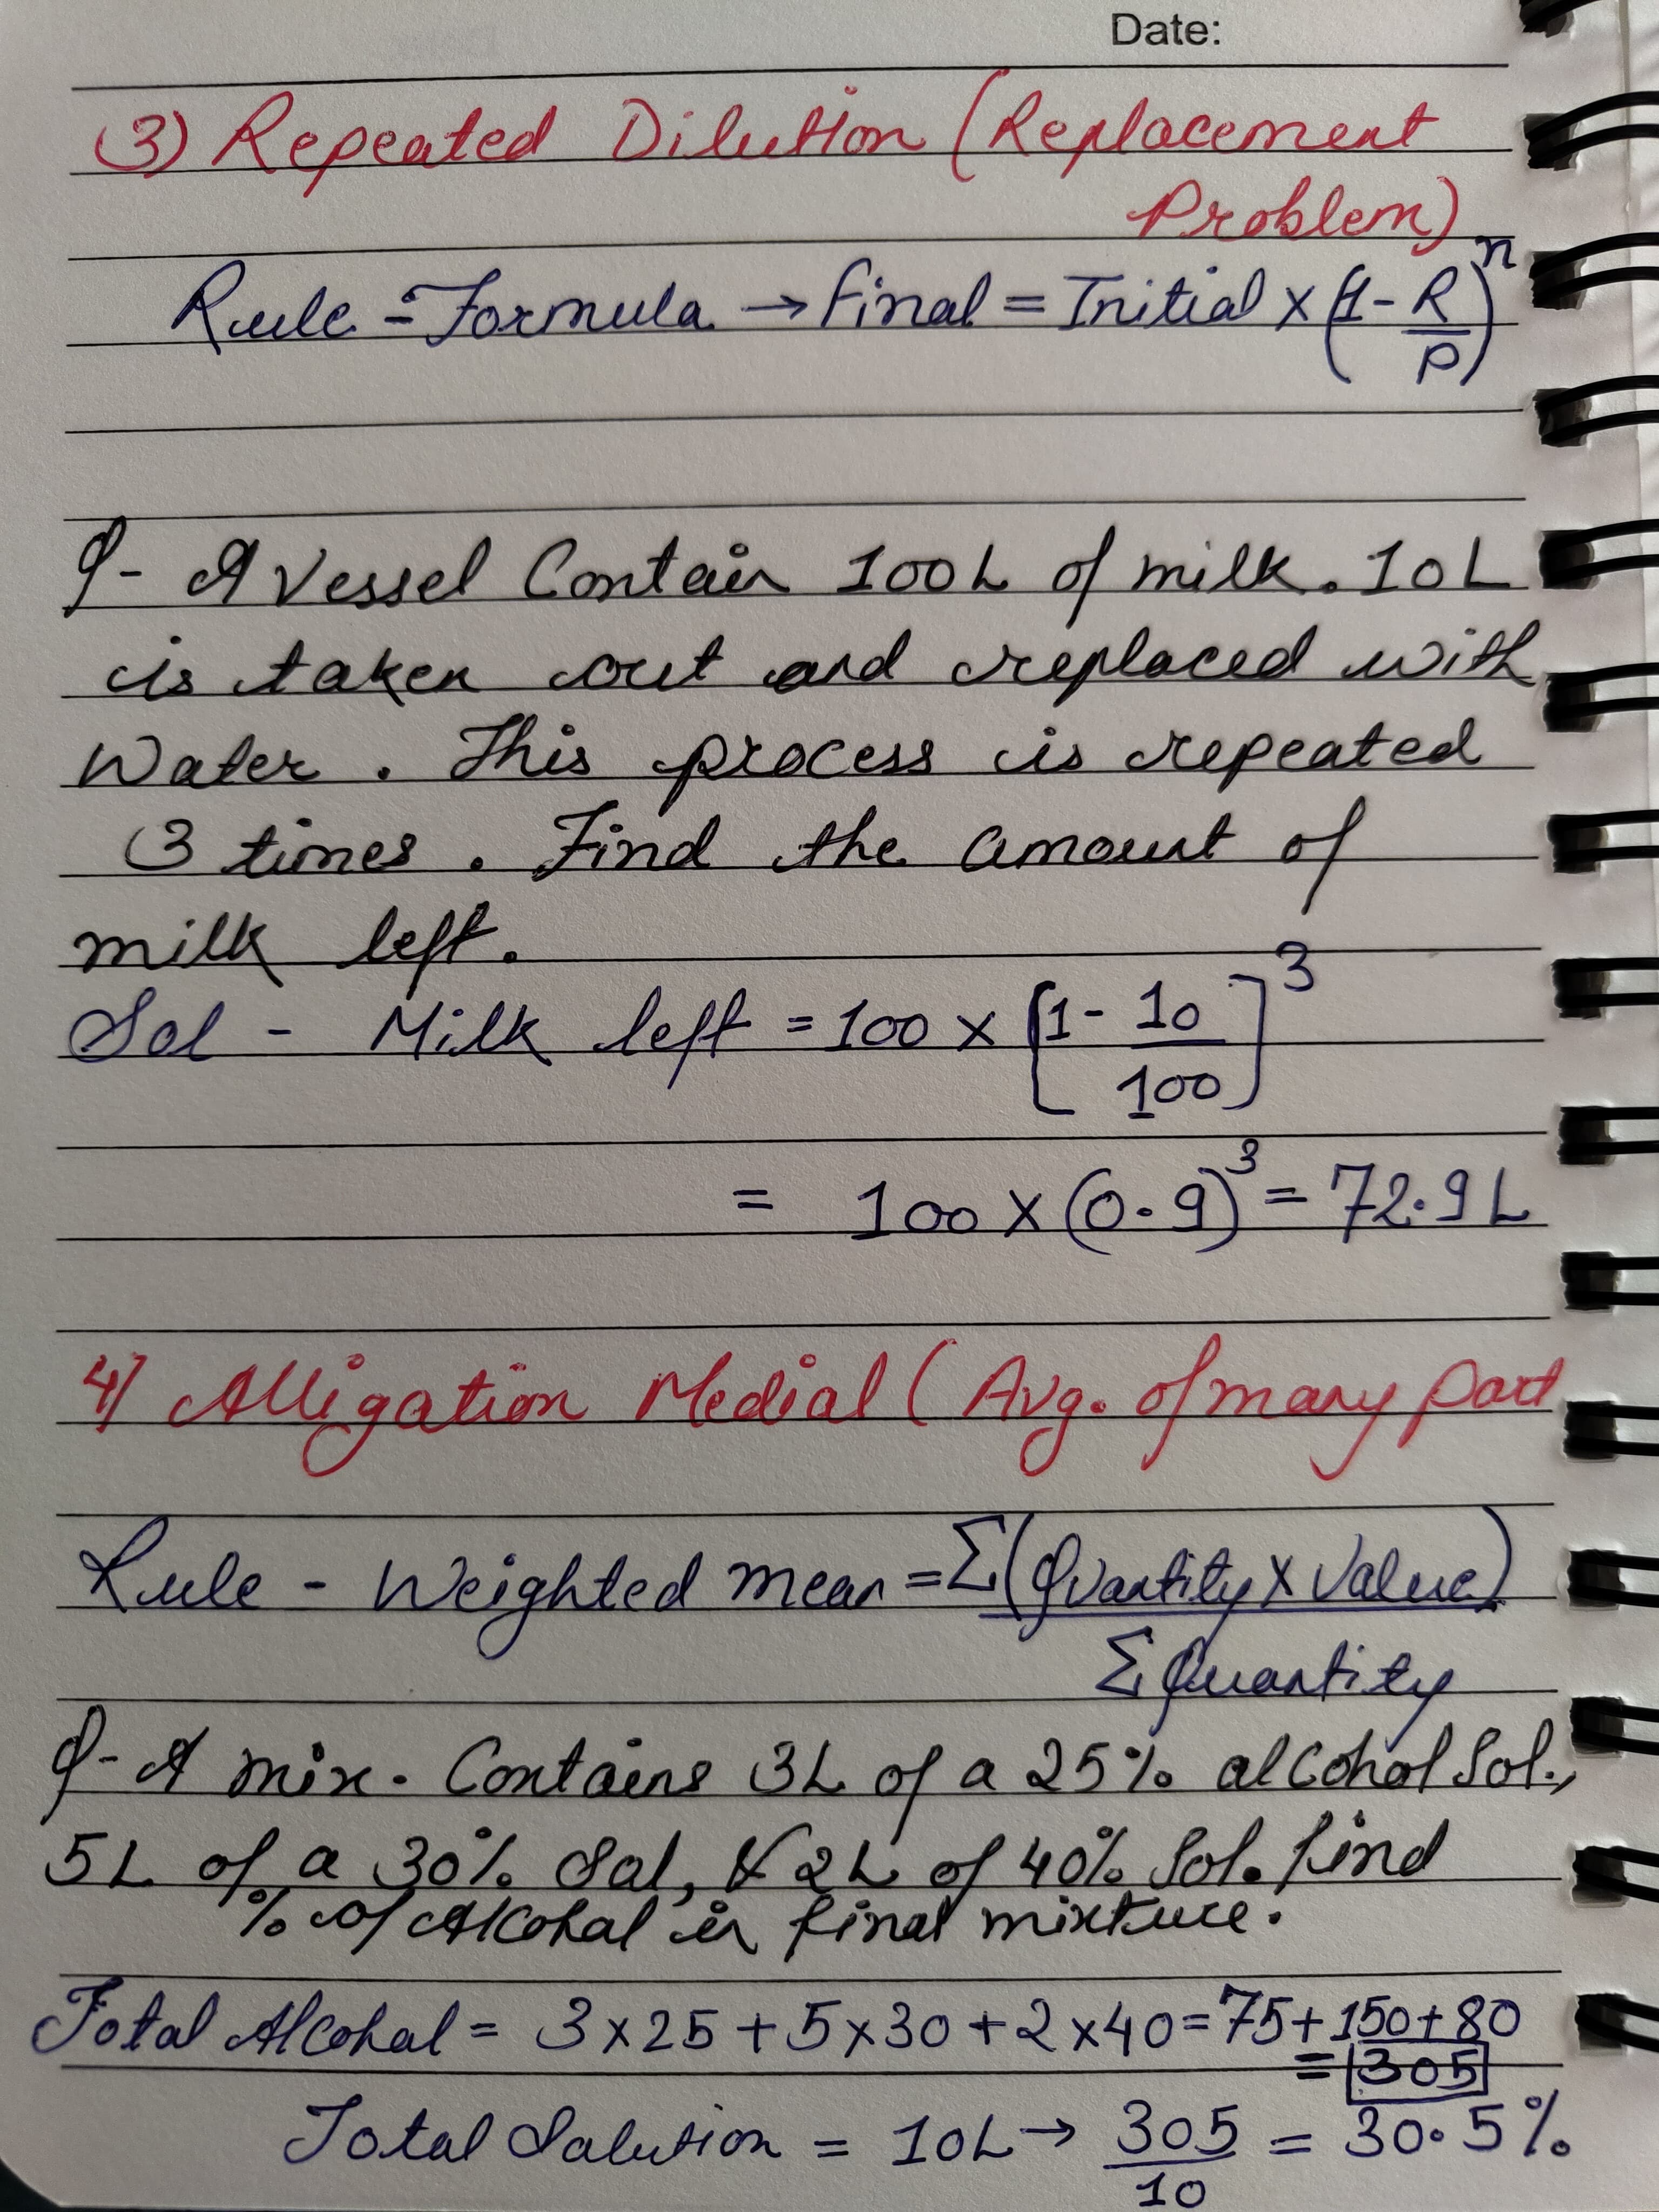 Date:
(3) Repeated Dilution (Replacement
Problem)
Rule - Formula → Final = Initial × (1 - R/P)^n
Q- A Vessel Contain 100L of milk. 10L
is taken out and replaced with
Water. This process is repeated
3 times. Find the amount of
milk left.
Sol - Milk left = 100 × [1 - 10/100]^3
= 100 × (0.9)^3 = 72.9 L
4) Alligation Medial (Avg. of many part
Rule - Weighted mean = Σ(Quantity × Value)
Σ Quantity
Q- A mix. Contains 3L of a 25% alcohol Sol.,
5L of a 30% Sol, & 2L of 40% Sol. find
% of Alcohal in final mixture.
Total Alcohal = 3×25 + 5×30 + 2×40 = 75+150+80
= 305
Total Solution = 10L → 305/10 = 30.5%